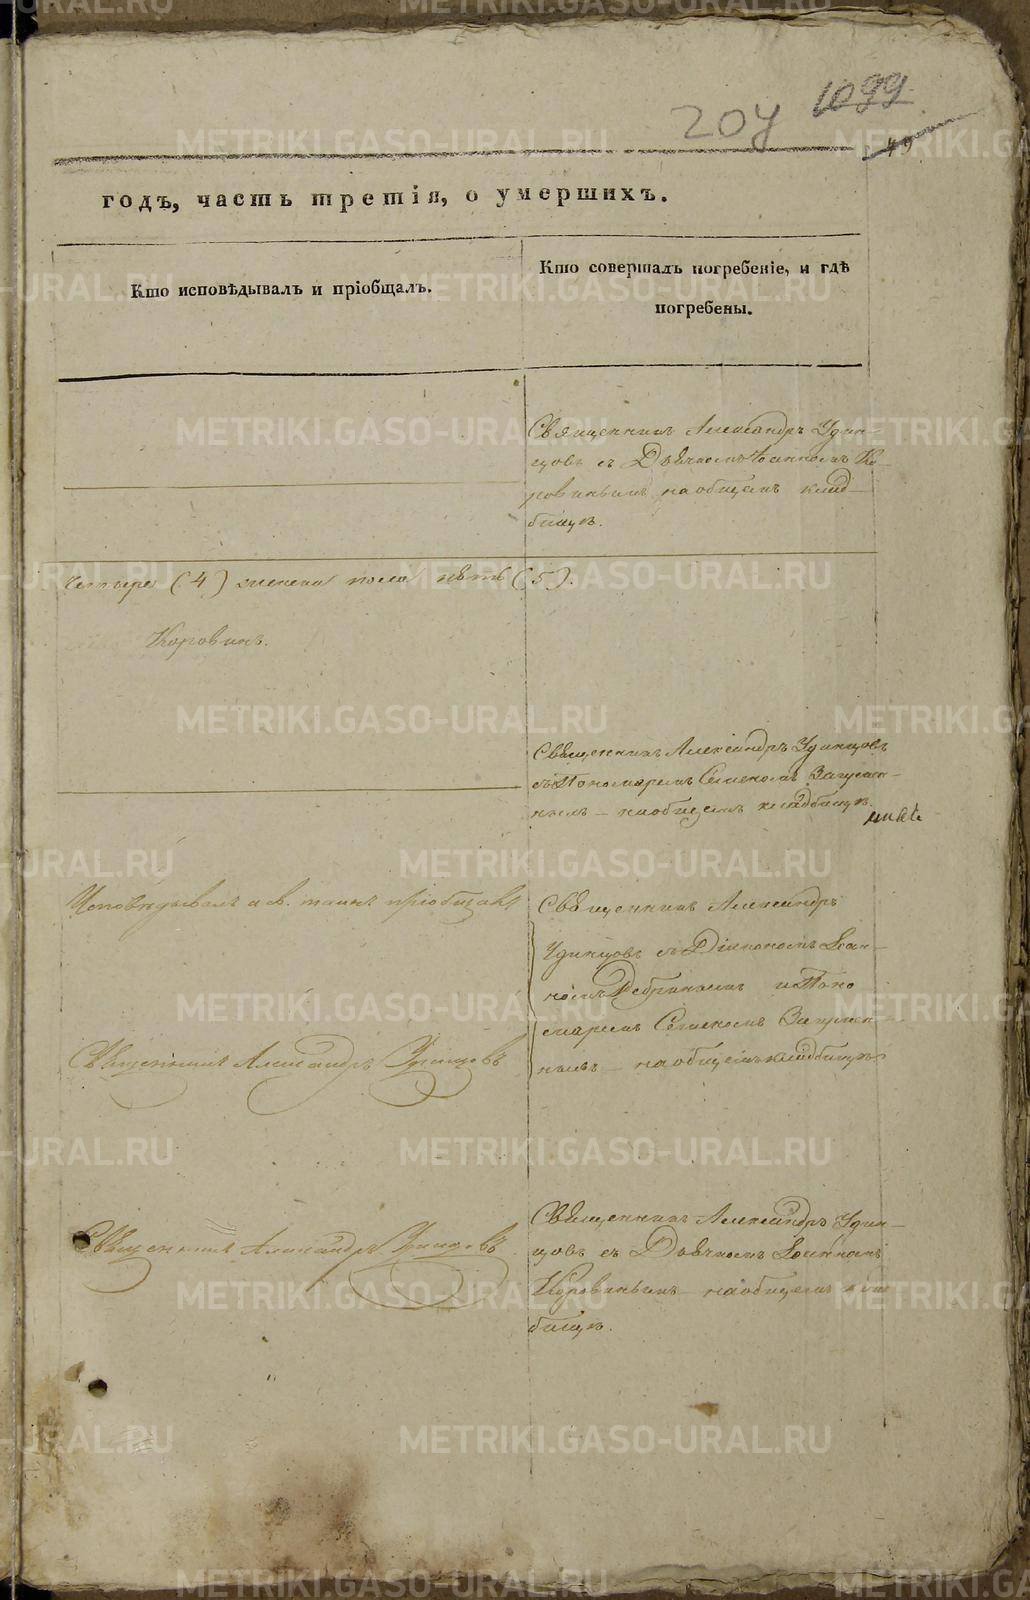 1099
204
49
годъ, часть третія, о умершихъ.
Кто исповѣдывалъ и пріобщалъ.
Кто совершалъ погребеніе, и гдѣ
погребены.
Священникъ Александръ Удин-
цовъ съ Дьячкомъ Іоанномъ Ко-
ровинымъ на общемъ клад-
бищѣ.
Четыре (4) женска пола пять (5).
Коровинъ.
Священникъ Александръ Удинцовъ
съ Пономаремъ Семеномъ
на общемъ кладбищѣ.
Исповѣдывалъ и св. таинъ пріобщалъ
Священникъ Александръ Удинцовъ
Священникъ Александръ
Удинцовъ съ Діакономъ Іоан-
номъ и Поно
маремъ Семеномъ
на общемъ кладбищѣ
Священникъ Александръ Удинцовъ
Священникъ Александръ Удин-
цовъ съ Дьячкомъ Іоанномъ
Коровинымъ на общемъ клад
бищѣ.
METRIKI.GASO-URAL.RU